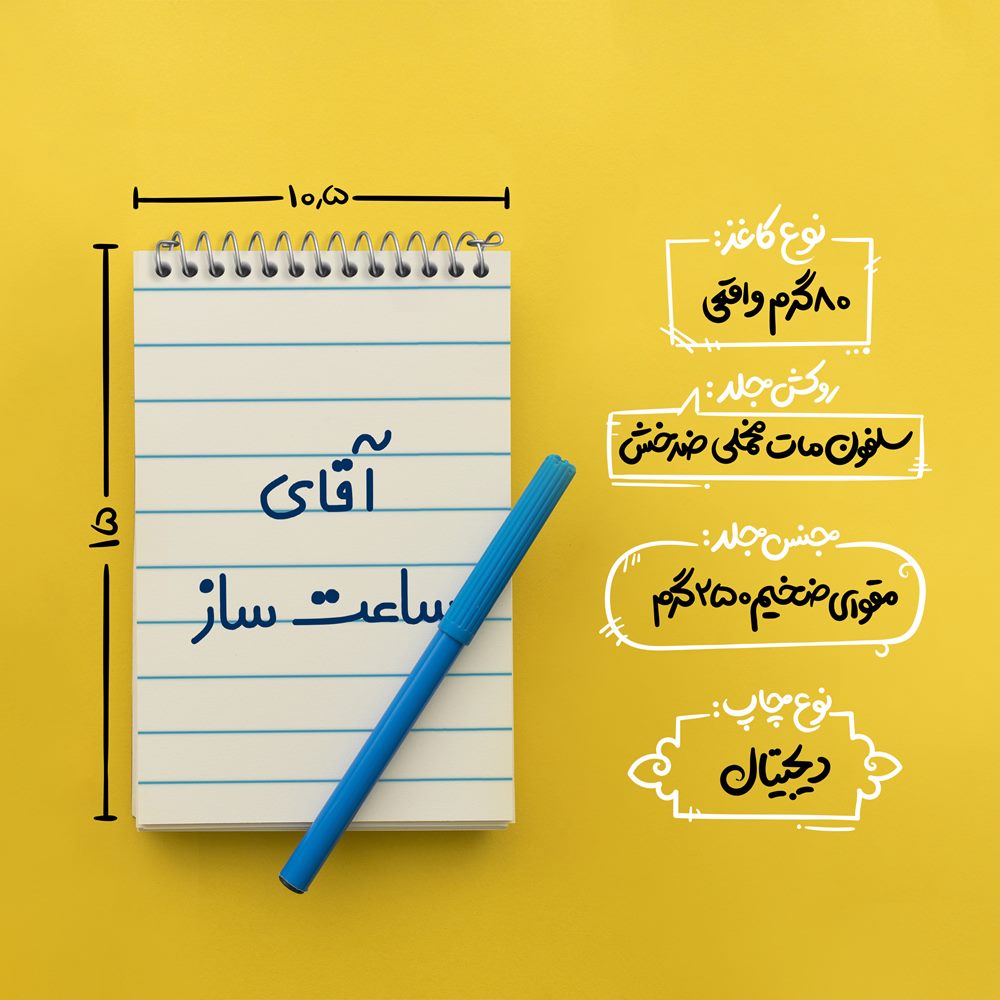 ۱۰,۵
۱۵
آقای
ساعت ساز
نوع کاغذ:
۸۰ گرم واقعی
روکش جلد:
سلفون مات مخملی ضدخش
جنس جلد:
مقوای ضخیم ۲۵۰ گرم
نوع چاپ:
دیجیتال